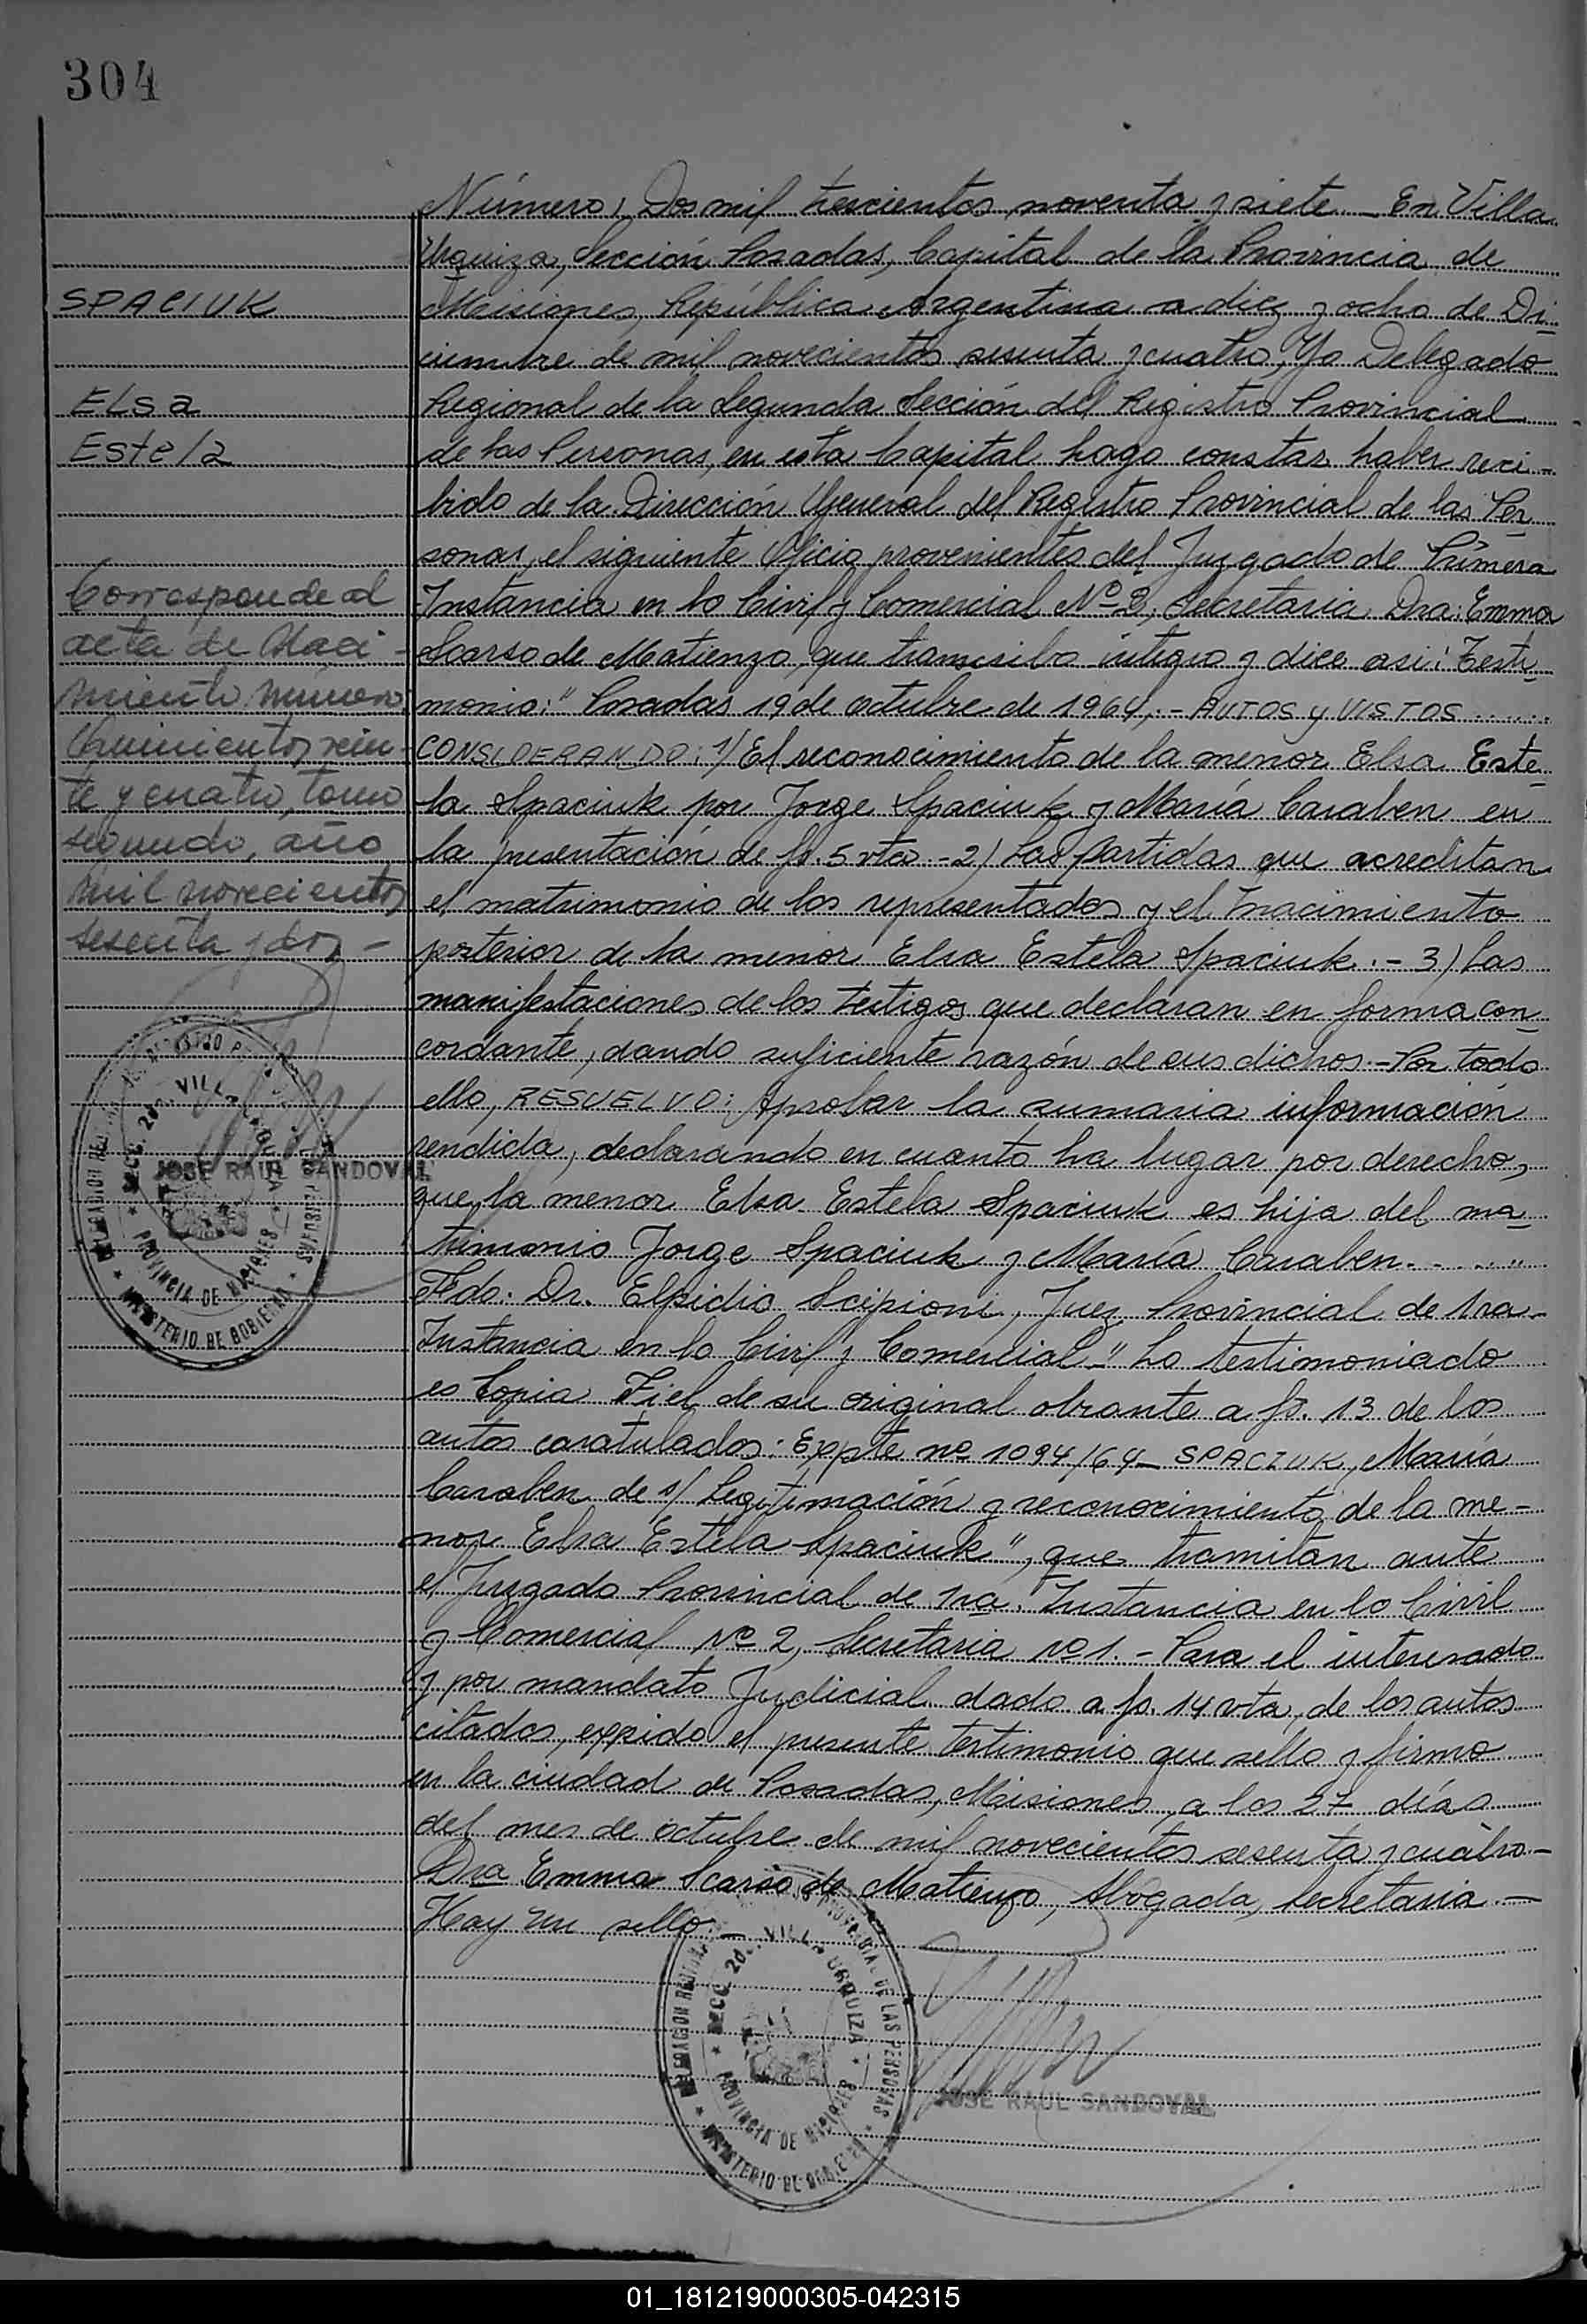 304
SPACIUK
Elsa
Estela
Corresponde al
acta de Naci-
miento número
Quinientos vein-
te y cuatro, tomo
segundo, año
mil novecientos
sesenta y dos -
JOSE RAUL SANDOVAL
SECC. 2da. VILLA URQUIZA
PROVINCIA DE MISIONES
MINISTERIO DE GOBIERNO
Número, Dos mil trescientos noventa y siete. - En Villa
Urquiza, Sección Posadas, Capital de la Provincia de
Misiones, República Argentina a diez y ocho de Di-
ciembre de mil novecientos sesenta y cuatro, Yo Delegado
Regional de la Segunda Sección del Registro Provincial
de las Personas, en esta Capital hago constar haber reci-
bido de la Dirección General del Registro Provincial de las Per-
sonas, el siguiente Oficio provenientes del Juzgado de Primera
Instancia en lo Civil y Comercial Nº 2, Secretaria Dra: Emma
Scarso de Matienzo, que transcribo integro y dice asi: Testi-
monio: " Posadas 19 de octubre de 1964, - AUTOS y VISTOS ......
CONSIDERANDO: 1/ El reconocimiento de la menor Elsa Este-
la Spaciuk por Jorge Spaciuk y María Caraben en
la presentación de fs. 5 vta - 2) Las partidas que acreditan
el matrimonio de los representados y el nacimiento
posterior de la menor Elsa Estela Spaciuk. - 3) Las
manifestaciones de los testigos que declaran en forma con-
cordante, dando suficiente razón de sus dichos. - Por todo
ello, RESUELVO: Aprobar la sumaria información
rendida, declarando en cuanto ha lugar por derecho,
que la menor Elsa Estela Spaciuk es hija del ma-
trimonio Jorge Spaciuk y María Caraben. ....."
Fdo: Dr. Elpidio Scipioni, Juez Provincial de 1ra
Instancia en lo Civil y Comercial " Lo testimoniado
es Copia Fiel de su original obrante a fs. 13 de los
autos caratulados: Expte nº 1094/64 - SPACIUK, María
Caraben de s/ Legitimación y reconocimiento de la me-
nor Elsa Estela Spaciuk", que tramitan ante
el Juzgado Provincial de 1ra. Instancia en lo Civil
y Comercial Nº 2, Secretaria nº 1. - Para el interesado
y por mandato Judicial dado a fs. 14 vta, de los autos
citados, expido el presente testimonio que sello y firmo
en la ciudad de Posadas, Misiones, a los 27 días
del mes de octubre de mil novecientos sesenta y cuatro -
Dra Emma Scarso de Matienzo, Abogada, Secretaria. -
Hay un sello -
SECC. 2da. VILLA URQUIZA
PROVINCIA DE MISIONES
MINISTERIO DE GOBIERNO
JOSE RAUL SANDOVAL
01_181219000305-042315